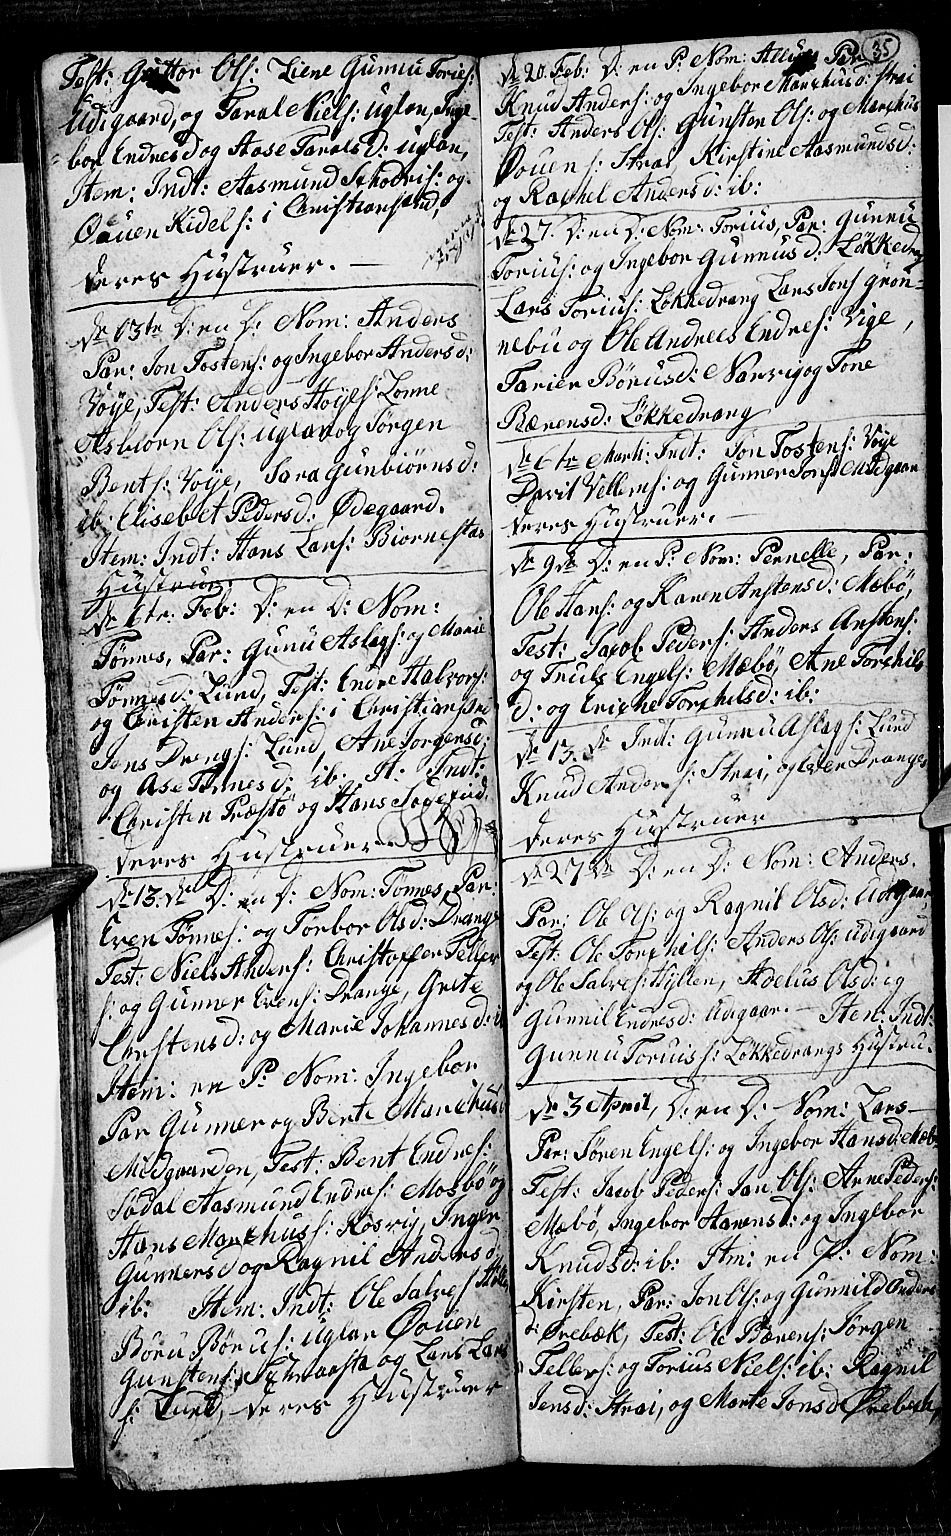 Test: Guttor Ols: Liene Gunnu Tories:
Udigaard, og Taral Niels: Uglan, Inge-
bor Endresd og Aase Taralsd: uglan,
Item: Indt: Aasmund og
Øuuen Kidels: i Christiansand,
deres Hustruer. —
De 63te D: en D: Nom: Anders
Par: Jon Tostens: og Ingebor Andersd:
Voÿe, Test: Anders Hoÿes: Lonne
Asbiorn Ols: Uglan og Jørgen
Bents: Voÿe, Sara Gunbiørnsd:
ib: Elisebet Pedersd: Ødegaard.
Item: Indt: Hans Lars: Biornestas
Hustrue.
De 6te Feb: D: en D: Nom:
Tønnes, Par: Gunu Aslags: og Marie
Tønnesd: Lund, Test: Endre Halvors:
og Christen Anders: i Christiansand
Jens Drengs: Lund, Ane Jorgensd:
og Ase Tønnesd: ib. It: Indt:
Christen Præstø og Hans
deres Hustruer
De 13 de D: en D: Nom: Tønnes, Par:
Even Tønnes: og Torbor Olsd: Drange
Test: Niels Anders: Christoffer Teller
s: og Gunner Evens: Drange, Grete
Christensd: og Marie Johannesd: ib
Item: en P: Nom: Ingebor
Par Gunner og Berte Marchusd
Midgaarden, Test: Bent Endres:
Sødal Aasmund Endres: Mosbø og
Hans Marchuss: Kosvig, Inger
Gunnersd og Ragnil Andersd
ib: Item: Indt: Ole Salves:
Børu Børus: Uglan Øvuen
Gunstens: og Lars Lars
s: Lund, deres Hustruer
35
De 20. Feb: D: en P: Nom: Par
Knud Anders: og Ingebor Marchusd: Strai
Test: Anders Ols: Gunsten Ols: og Marchus
Øvuens: Strai Kirstine Aasmundsd:
og Rachel Andersd: ib:
De 27. D: en D: Nom: Torius, Par: Gunnu
Torius: og Ingebor Gunnusd: Løkkedrang
Lars Torius: Løkkedrang Lars Jons grøn-
nebu og Ole Andreas Endres: Vige,
Tarier Børusd: Narvig og Tone
Bærensd: Løkkedrang
De 6te Marti: Indt: Jon Tostens: Voÿe
Davit Vellems: og Gunner Jons: Midgaar
deres Hustruer. —
De 9de D: en P: Nom: Pernelle, Par:
Ole Hans: og Karen Anstensd: Mæbø,
Test: Jacob Peders: Anders Anstens:
og Truls Engels: Mæbø, Ane Torchils
d: og Eriche Torchilsd: ib:
De 13. de Indt: Gunnu Aslags: Lund
Knud Anders: Strai, og Even Dranges
deres Hustruer
De 27 de D: en D: Nom: Anders.
Par: Ole Ols: og Ragnil Olsd: Udigaar,
Test: Ole Torchils: Anders Ols: Udigaard
og Ole Salves: Hyllen, Olsd: og
Gunnil Endresd: Udigaar. — Item: Indt:
Gunnu Toruis s: Løkkedrangs Hustru.
De 3 April, D: en D: Nom: Lars—
Par: Søren Engels: og Ingebor Hansd: Mæb
Test: Jacob Peders: Jan Ols: Arne Peders:
Mæbø, Ingebor Harensd: og Ingebor
Knudsd: ib: Itm: en P: Nom:
Kirsten, Par: Jon Ols: og Gunnild Anders
d: Ørebæk, Test: Ole Bærens: Jørgen
Tellers: og Torius Niels: ib: Ragnil
Jensd: Strai, og Marte Jonsd Ørebech,